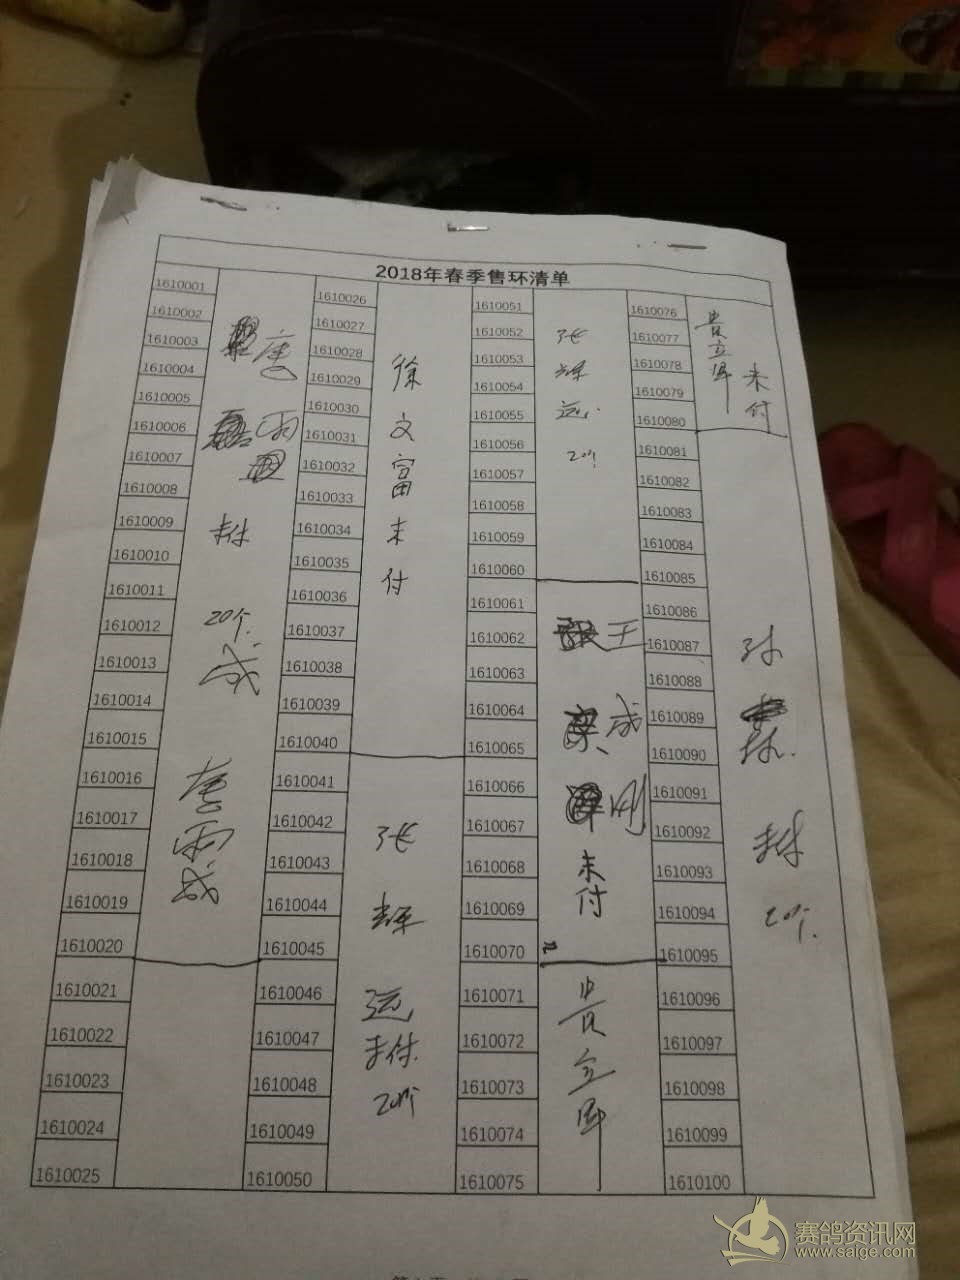 2018年春季售环清单
1610001
1610002
1610003
1610004
1610005
1610006
1610007
1610008
1610009
1610010
1610011
1610012
1610013
1610014
1610015
1610016
1610017
1610018
1610019
1610020
1610021
1610022
1610023
1610024
1610025
唐
雨
20个
成
李
雨
成
1610026
1610027
1610028
1610029
1610030
1610031
1610032
1610033
1610034
1610035
1610036
1610037
1610038
1610039
1610040
1610041
1610042
1610043
1610044
1610045
1610046
1610047
1610048
1610049
1610050
徐
文
富
未
付
张
辉
远
未付
20个
1610051
1610052
1610053
1610054
1610055
1610056
1610057
1610058
1610059
1610060
1610061
1610062
1610063
1610064
1610065
1610066
1610067
1610068
1610069
1610070
1610071
1610072
1610073
1610074
1610075
张
辉
远
20个
王
成
刚
未
付
贵
立
军
1610076
1610077
1610078
1610079
1610080
1610081
1610082
1610083
1610084
1610085
1610086
1610087
1610088
1610089
1610090
1610091
1610092
1610093
1610094
1610095
1610096
1610097
1610098
1610099
1610100
贵立军
未付
孙
20个
赛鸽资讯网
www.saige.com